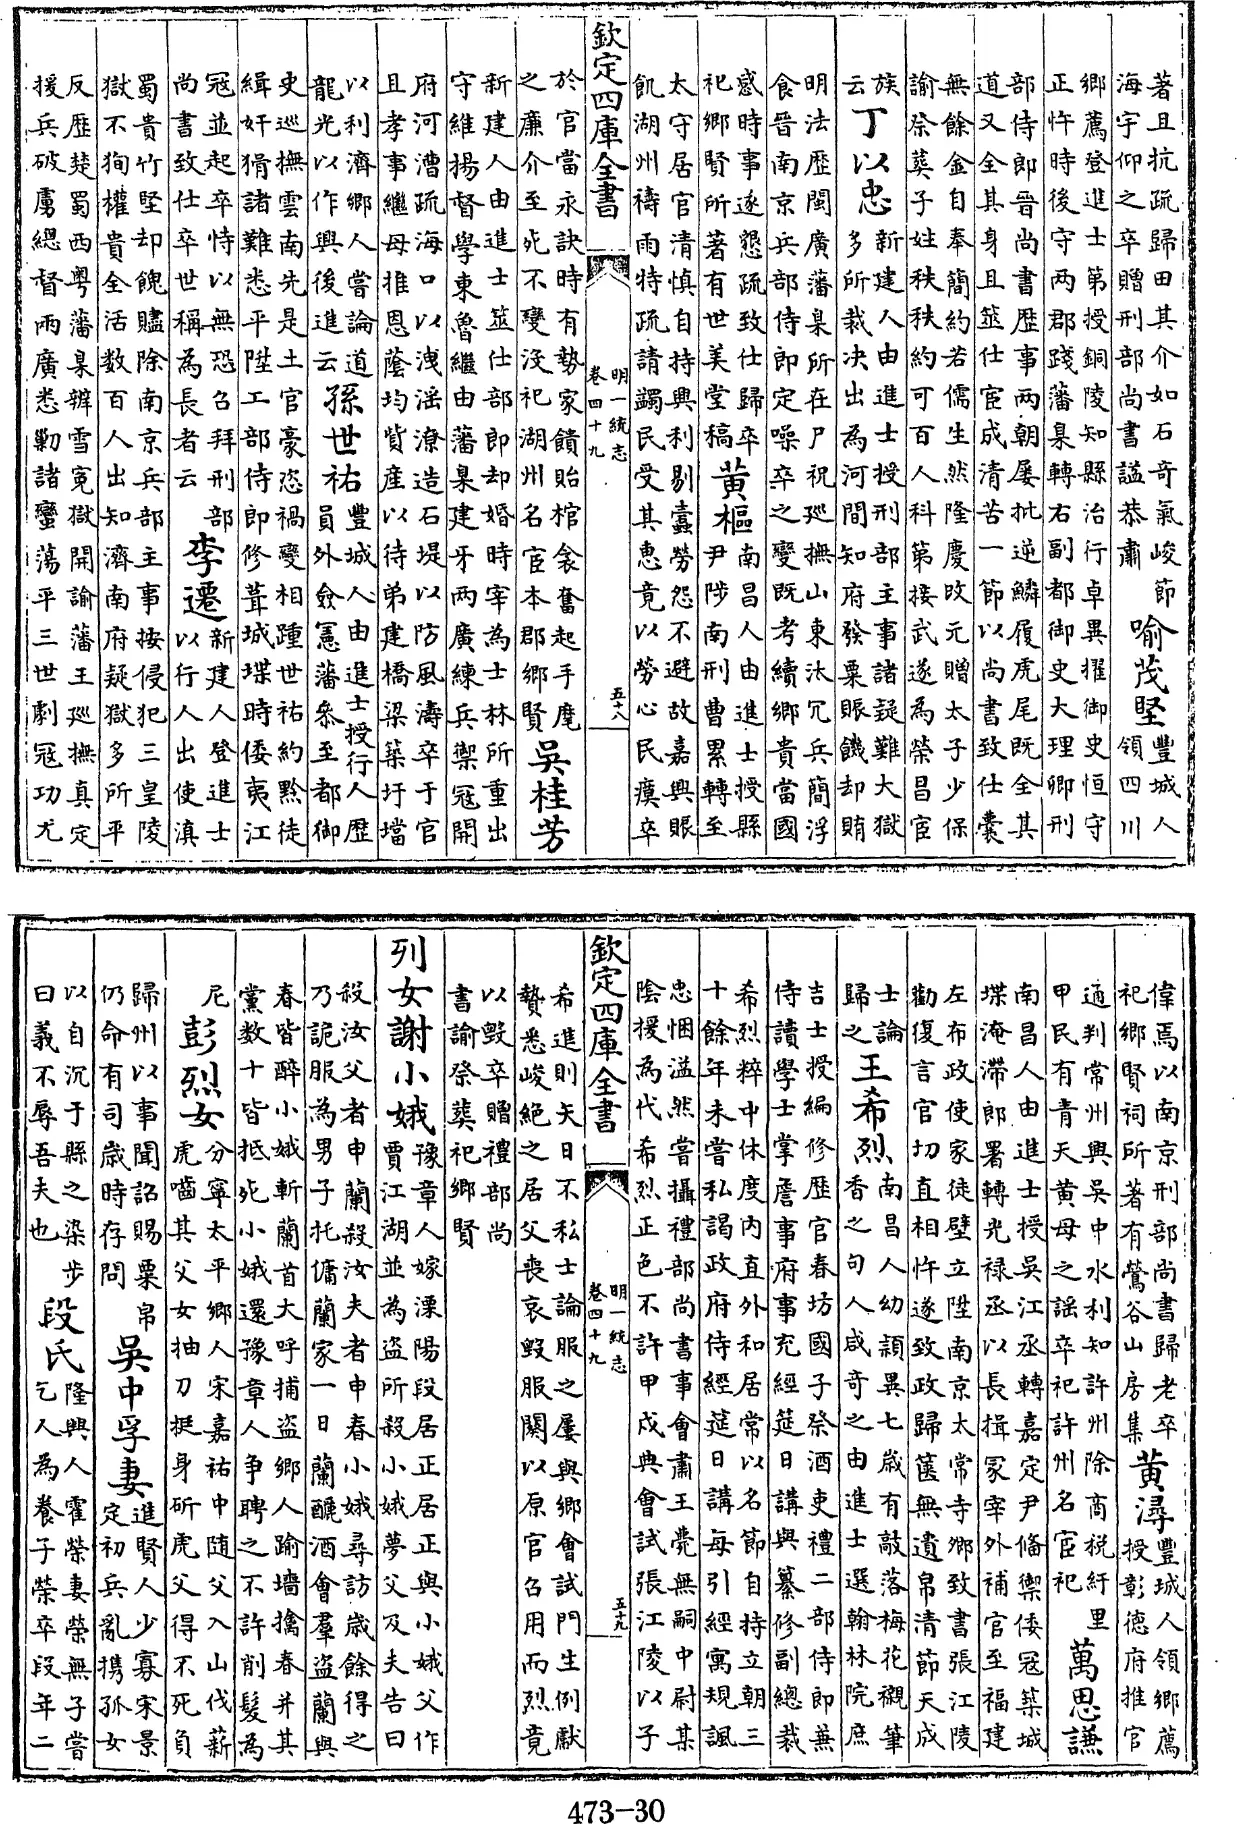 著且抗疏歸田其介如石奇氣峻節
海宇仰之卒贈刑部尚書諡恭肅
喻茂堅
豐城人
領四川
鄉薦登進士第授銅陵知縣治行卓異擢御史恒守
正忤時後守兩郡踐藩臬轉右副都御史大理卿刑
部侍郎晉尚書歷事兩朝屢批逆鱗履虎尾既全其
道又全其身且筮仕宦成清苦一節以尚書致仕囊
無餘金自奉簡約若儒生然隆慶改元贈太子少保
諭祭葬子姓秩秩約可百人科第接武遂為榮昌宦
族
云
丁以忠
新建人由進士授刑部主事諸疑難大獄
多所裁决出為河間知府發粟賑饑却賄
明法歷閩廣藩臬所在尸祝巡撫山東汰冗兵簡浮
食晉南京兵部侍郎定噪卒之變既考績鄉貴當國
惑時事遂懇疏致仕歸卒
祀鄉賢所著有世美堂稿
黃樞
南昌人由進士授縣
尹陟南刑曹累轉至
太守居官清慎自持興利剔蠹勞怨不避故嘉興賑
飢湖州禱雨特疏請蠲民受其惠竟以勞心民瘼卒
欽定四庫全書
明一統志
卷四十九
五十八
於官當永訣時有勢家饋貽棺衾奮起手麾
之廉介至死不變沒祀湖州名宦本郡鄉賢
吳桂芳
新建人由進士筮仕部郎却婚時宰為士林所重出
守維揚督學東魯繼由藩臬建牙兩廣練兵禦冦開
府河漕疏海口以洩滛潦造石堤以防風濤卒于官
且孝事繼母推恩蔭均貲産以待弟建橋梁築圩壋
以利濟鄉人嘗論道
龍光以作興後進云
孫世祐
豐城人由進士授行人歷
員外僉憲藩叅至都御
史巡撫雲南先是土官豪恣禍變相踵世祐約黔徒
緝奸猾諸難悉平陞工部侍郎修葺城堞時倭夷江
冦並起卒恃以無恐召拜刑部
尚書致仕卒世稱為長者云
李遷
新建人登進士
以行人出使滇
蜀貴竹堅却餽贐除南京兵部主事按侵犯三皇陵
獄不狥權貴全活数百人出知濟南府疑獄多所平
反歷楚蜀西粤藩臬辨雪寃獄開諭藩王巡撫真定
援兵破虜總督兩廣悉勦諸蠻蕩平三世劇冦功尤
偉焉以南京刑部尚書歸老卒
祀鄉賢祠所著有鶯谷山房集
黃潯
豐城人領鄉薦
授彰德府推官
適判常州興吳中水利知許州除商稅紓里
甲民有青天黄母之謡卒祀許州名宦祀
萬思謙
南昌人由進士授吳江丞轉嘉定尹俻禦倭冦築城
堞淹滯郎署轉光禄丞以長揖冢宰外補官至福建
左布政使家徒壁立陞南京太常寺卿致書張江陵
勸復言官切直相忤遂致政歸篋無遺帛清節天成
士論
歸之
王希烈
南昌人幼頴異七嵗有敲落梅花襯筆
香之句人咸奇之由進士選翰林院庶
吉士授編修歷官春坊國子祭酒吏禮二部侍郎兼
侍讀學士掌詹事府事充經筵日講與纂修副總裁
希烈粹中休度内直外和居常以名節自持立朝三
十餘年未嘗私謁政府侍經筵日講每引經寓規諷
忠悃溢然嘗攝禮部尚書事會肅王薨無嗣中尉某
陰援為代希烈正色不許甲戍典會試張江陵以子
欽定四庫全書
明一統志
卷四十九
五十九
希進則矢日不私士論服之屢與鄉會試門生例獻
贄悉峻絶之居父喪哀毁服闋以原官召用而烈竟
以毁卒贈禮部尚
書諭祭葬祀鄉賢
列女謝小娥
豫章人嫁溧陽段居正居正與小娥父作
賈江湖並為盗所殺小娥夢父及夫告曰
殺汝父者申蘭殺汝夫者申春小娥尋訪歳餘得之
乃詭服為男子托傭蘭家一日蘭釃酒會羣盗蘭與
春皆醉小娥斬蘭首大呼捕盗鄉人踰墻擒春并其
黨数十皆抵死小娥還豫章人争聘之不許削髮為
尼
彭烈女
分寧太平鄉人宋嘉祐中随父入山伐薪
虎嚙其父女抽刀挺身斫虎父得不死負
歸州以事聞詔賜粟帛
仍命有司歲時存問
吳中孚妻
進賢人少寡宋景
定初兵亂携孤女
以自沉于縣之染步
曰義不辱吾夫也
段氏
隆興人霍榮妻榮無子嘗
乞人為養子榮卒段年二
473-30